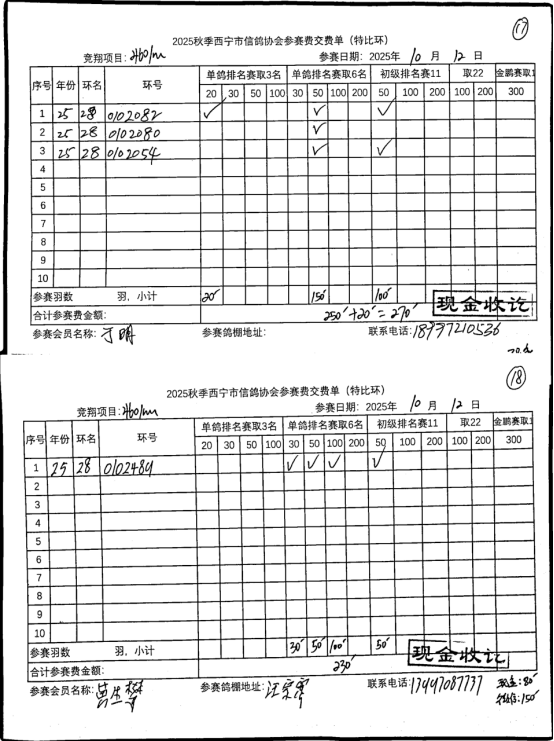 17
2025秋季西宁市信鸽协会参赛费交费单（特比环）
竞翔项目：460km 参赛日期：2025年 10 月 12 日
序号 年份 环名 环号 单鸽排名赛取3名 单鸽排名赛取6名 初级排名赛11 取22 金鹏赛取1
20 30 50 100 30 50 100 200 50 100 200 100 200 300
1 25 28 0102082 ✓ ✓ ✓
2 25 28 0102080 ✓
3 25 28 0102054 ✓ ✓
4
5
6
7
8
9
10
参赛羽数 羽，小计 20 150 100
合计参赛费金额： 250+20=270 现金收讫
参赛会员名称： 参赛鸽棚地址： 联系电话：18997210536
18
2025秋季西宁市信鸽协会参赛费交费单（特比环）
竞翔项目：460km 参赛日期：2025年 10 月 12 日
序号 年份 环名 环号 单鸽排名赛取3名 单鸽排名赛取6名 初级排名赛11 取22 金鹏赛取1
20 30 50 100 30 50 100 200 50 100 200 100 200 300
1 25 28 0102489 ✓ ✓ ✓ ✓
2
3
4
5
6
7
8
9
10
参赛羽数 羽，小计 30 50 100 50
合计参赛费金额： 230 现金收讫
参赛会员名称： 参赛鸽棚地址： 联系电话：17997087737 现金：80
微信：150